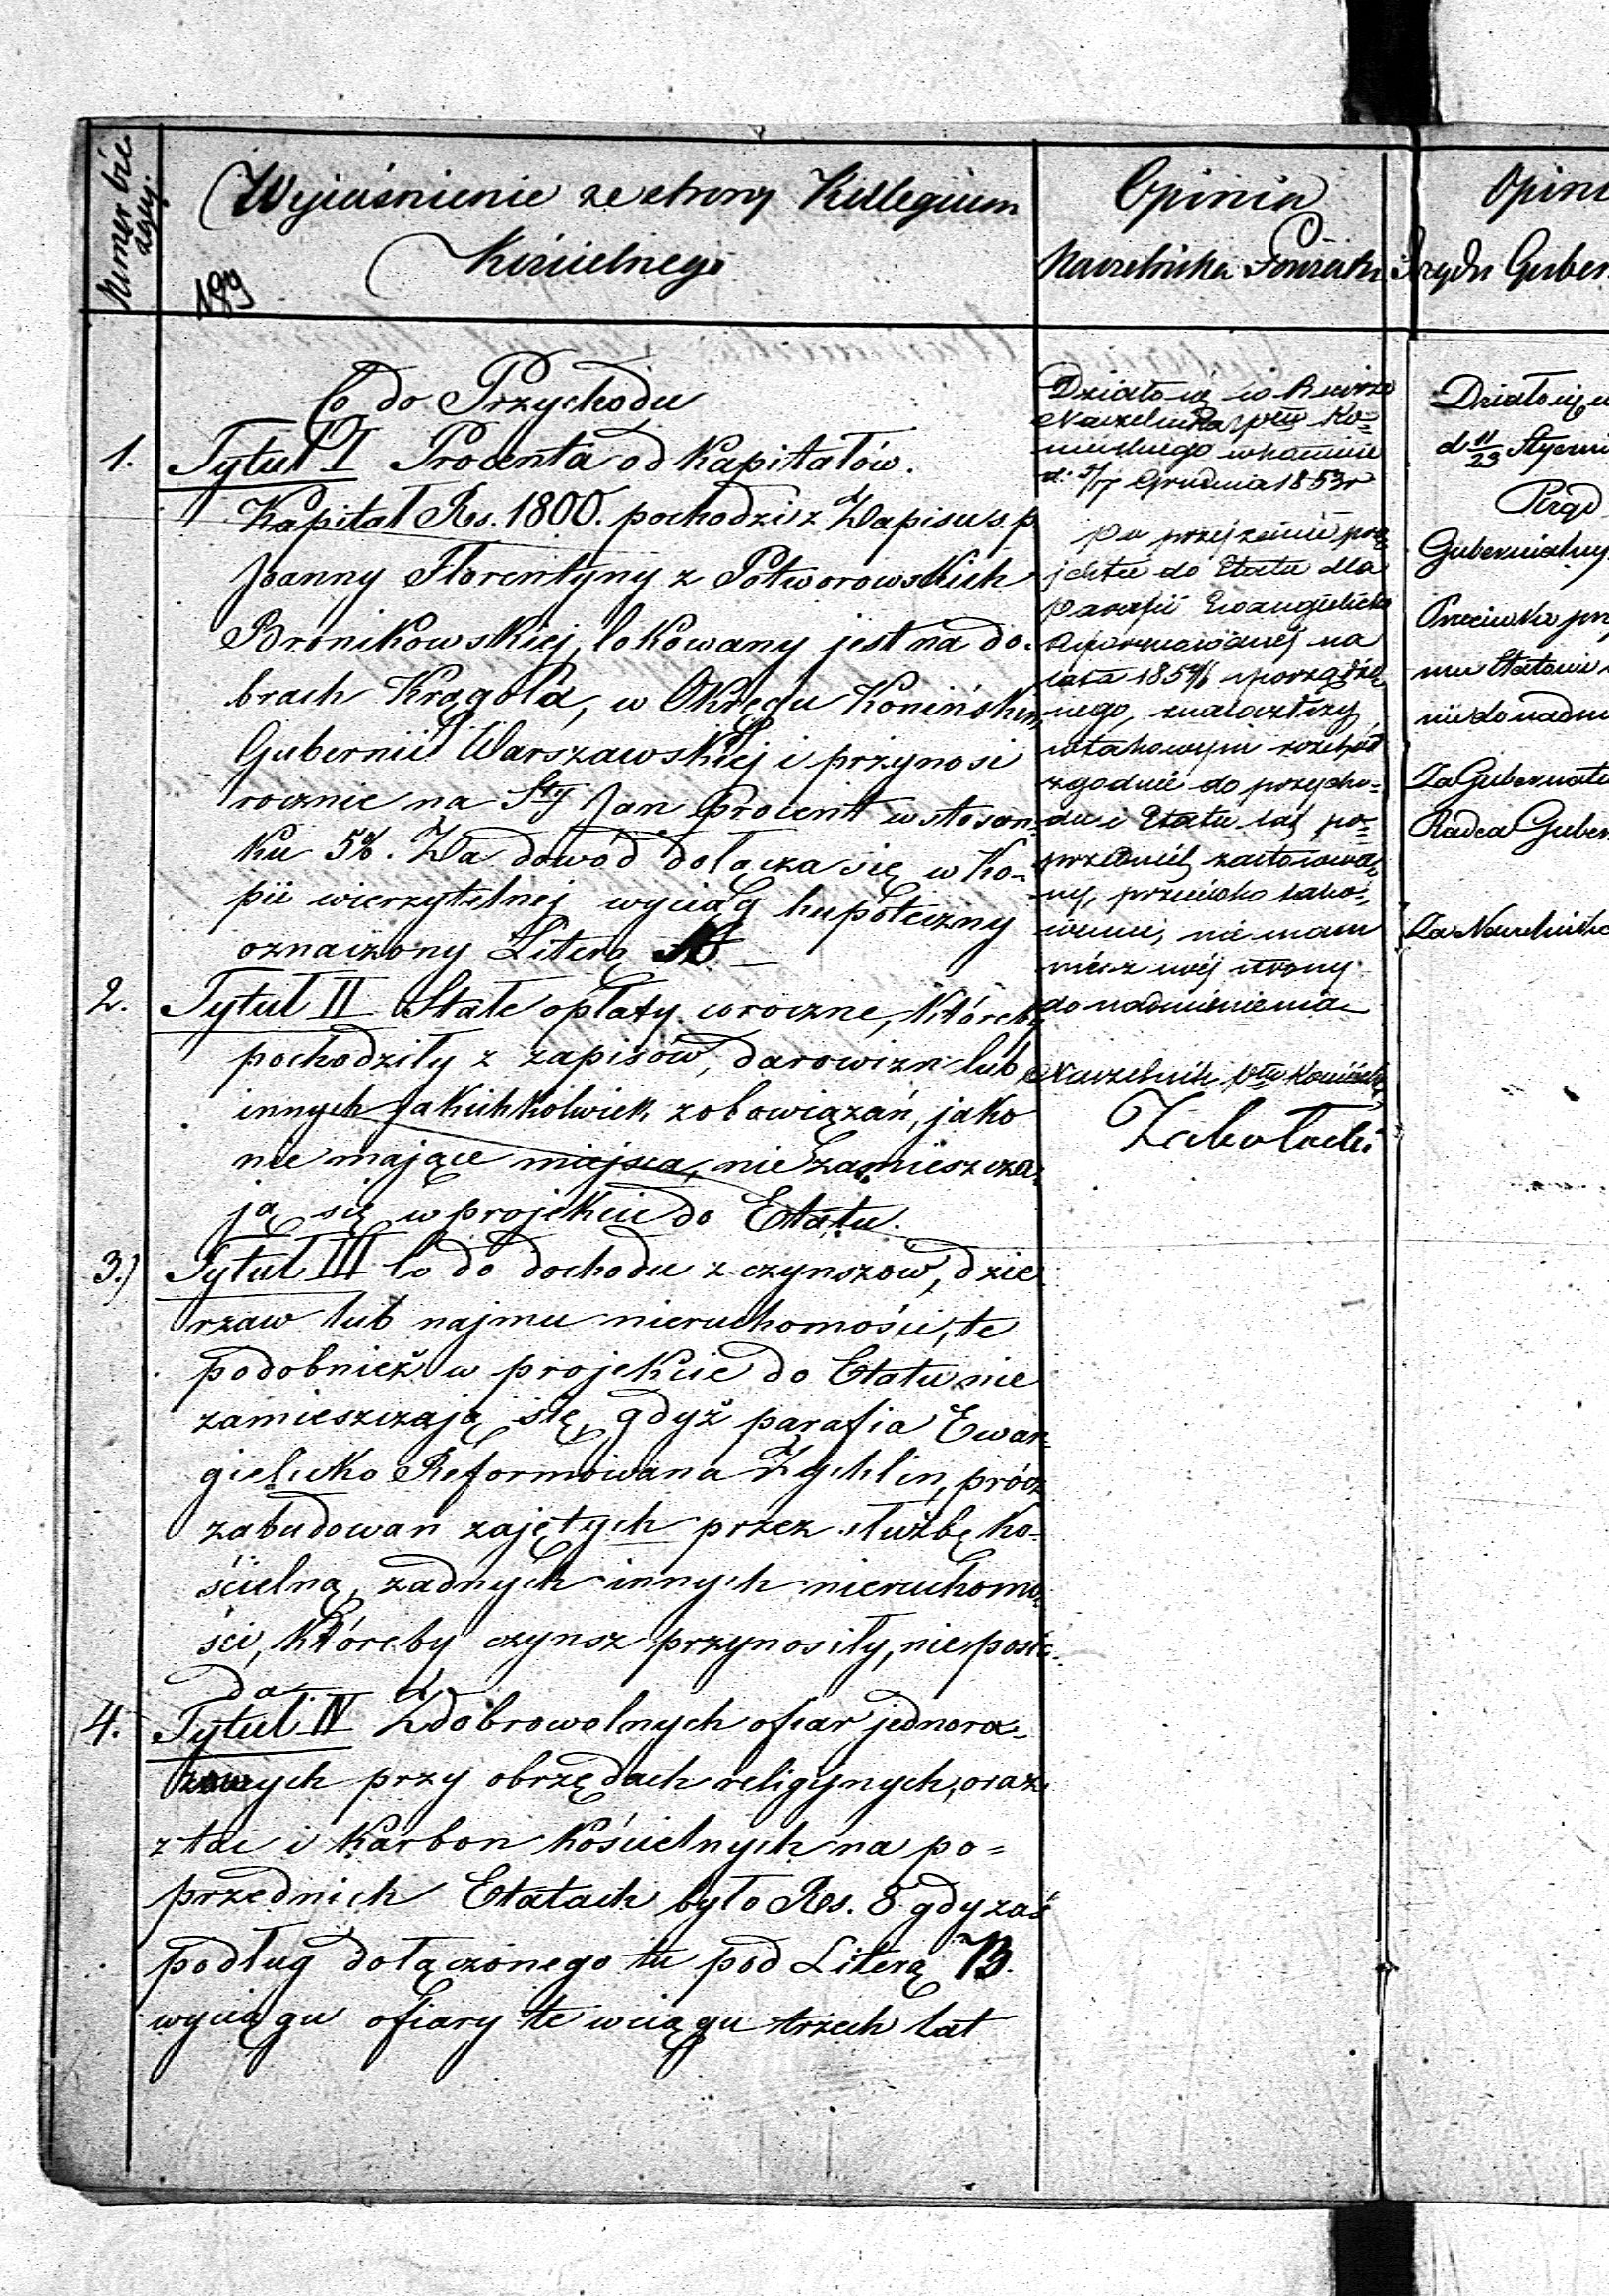 Numer bie-
żący.
Wyjaśnienie ze strony Kollegium
Kościelnego
189
Opinia
Naczelnika Powiatu
Opini
Rządu Guber
Co do Przychodu
1. Tytuł I Procenta od Kapitałów.
Kapitał Rs. 1800. pochodzi z Zapisu ś. p.
Joanny Florentyny z Potworowskich
Bronikowskiej, lokowany jest na do-
brach Krągola, w Okręgu Konińskim,
Gubernii Warszawskiej i przynosi
rocznie na Sty Jan Procent w stosun-
ku 5%. Na dowód dołącza się w Ko-
pii wierzytelnej wyciąg hypoteczny
oznaczony Literą A.
2. Tytuł II Stałe opłaty coroczne, któreby
pochodziły z zapisów, darowizn lub
innych jakichkolwiek zobowiązań, jako
nie mające miejsca, nie zamieszcza-
ją się w projekcie do Etatu.
3.) Tytuł III Co do dochodu z czynszów, dzier-
rzaw lub najmu nieruchomości, te
podobnież w projekcie do Etatu nie
zamieszczają się, gdyż parafia Ewan-
gielicko Reformowana Żychlin, prócz
zabudowań zajętych przez służbę ko-
ścielną, żadnych innych nieruchomo-
ści, któreby czynsz przynosiły, nie posia-
da.
4. Tytuł IV Z dobrowolnych ofiar jednora-
zowych przy obrzędach religijnych, oraz
z tac i Karbon Kościelnych na po=
przednich Etatach było Rs. 8 gdy zaś
podług dołączonego tu pod Literą B.
wyciągu ofiary te w ciągu trzech lat
Działo się w Biurze
Naczelnika Ptu Ko-
nińskiego w Koninie
d. 5/17 Grudnia 1853 r
Po przejrzeniu pro-
jektu do Etatu dla
Parafii Ewangielicko
Reformowanej na
lata 1854/6 sporządzo-
nego, znalazłszy
w takowym rozchód
zgodnie do przycho-
du i Etatu lat po-
przednich zastosowa-
ny, przeciwko tako-
wemu, nie mam
nic z mej strony
do nadmienienia
Naczelnik Ptu Konińskiego
Działo się w
d 11/23 Stycznia
Rząd
Gubernialny
Przeciwko prz
mu Etatowi
nic do nadm
Za Gubernato
Radca Guber
Za Naczelnika